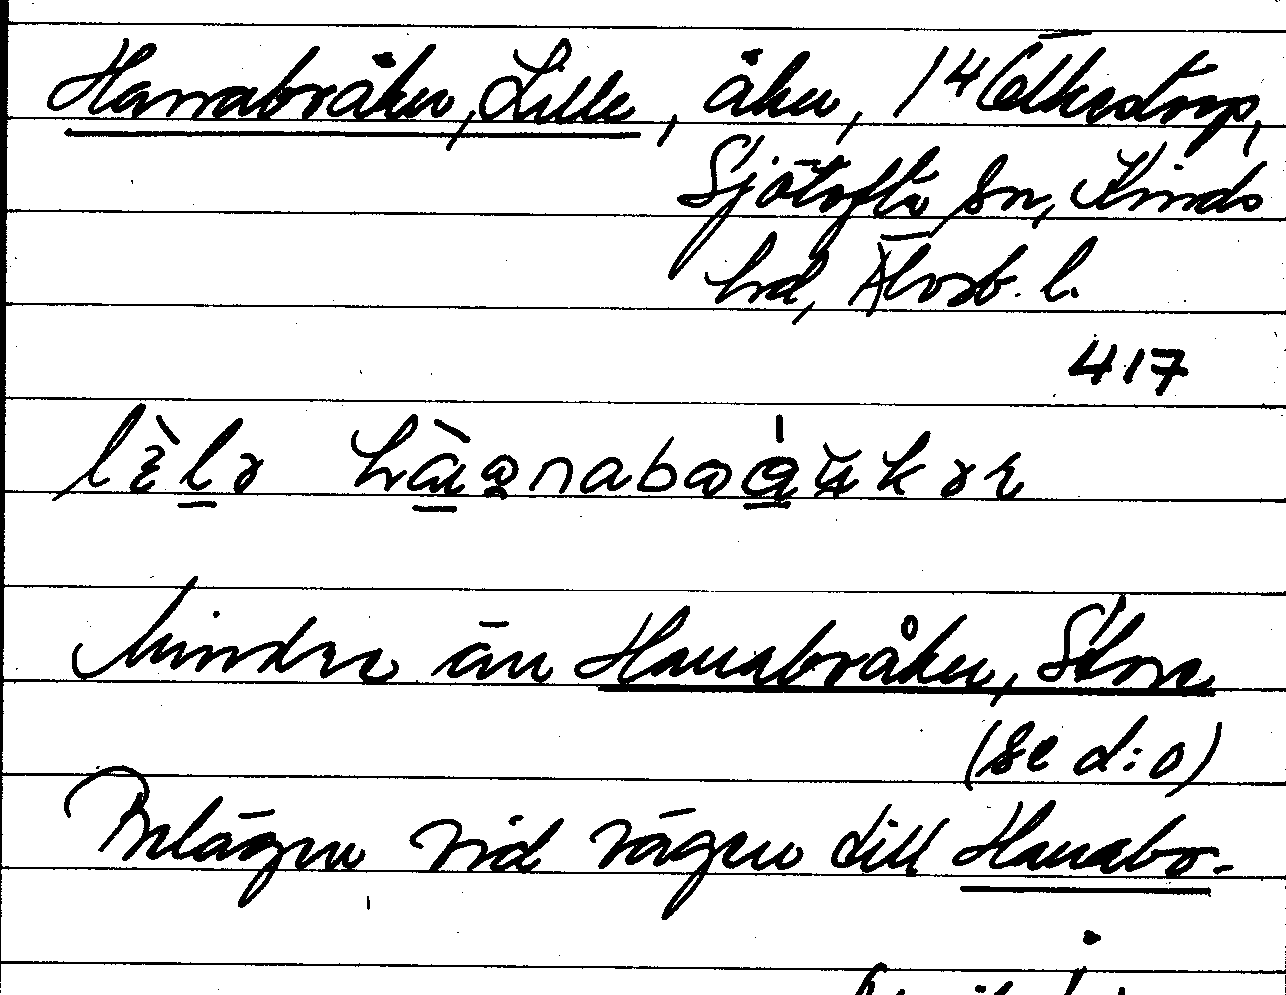 Hanabråken, Lille, åker, 14 Ölkestorp,
Sjötofta sn, Kinds
hd, Älvsb. l.
417
Mindre än Hanabråken, Stora
(se d:o)
Belägen vid vägen till Hanabo-